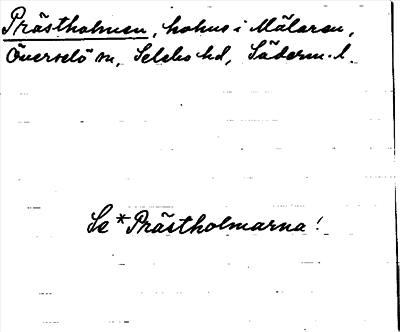 Prästholmen, holme i Mälaren,
Överselö sn, Selebo hd, Söderm. l.
Se *Prästholmarna!